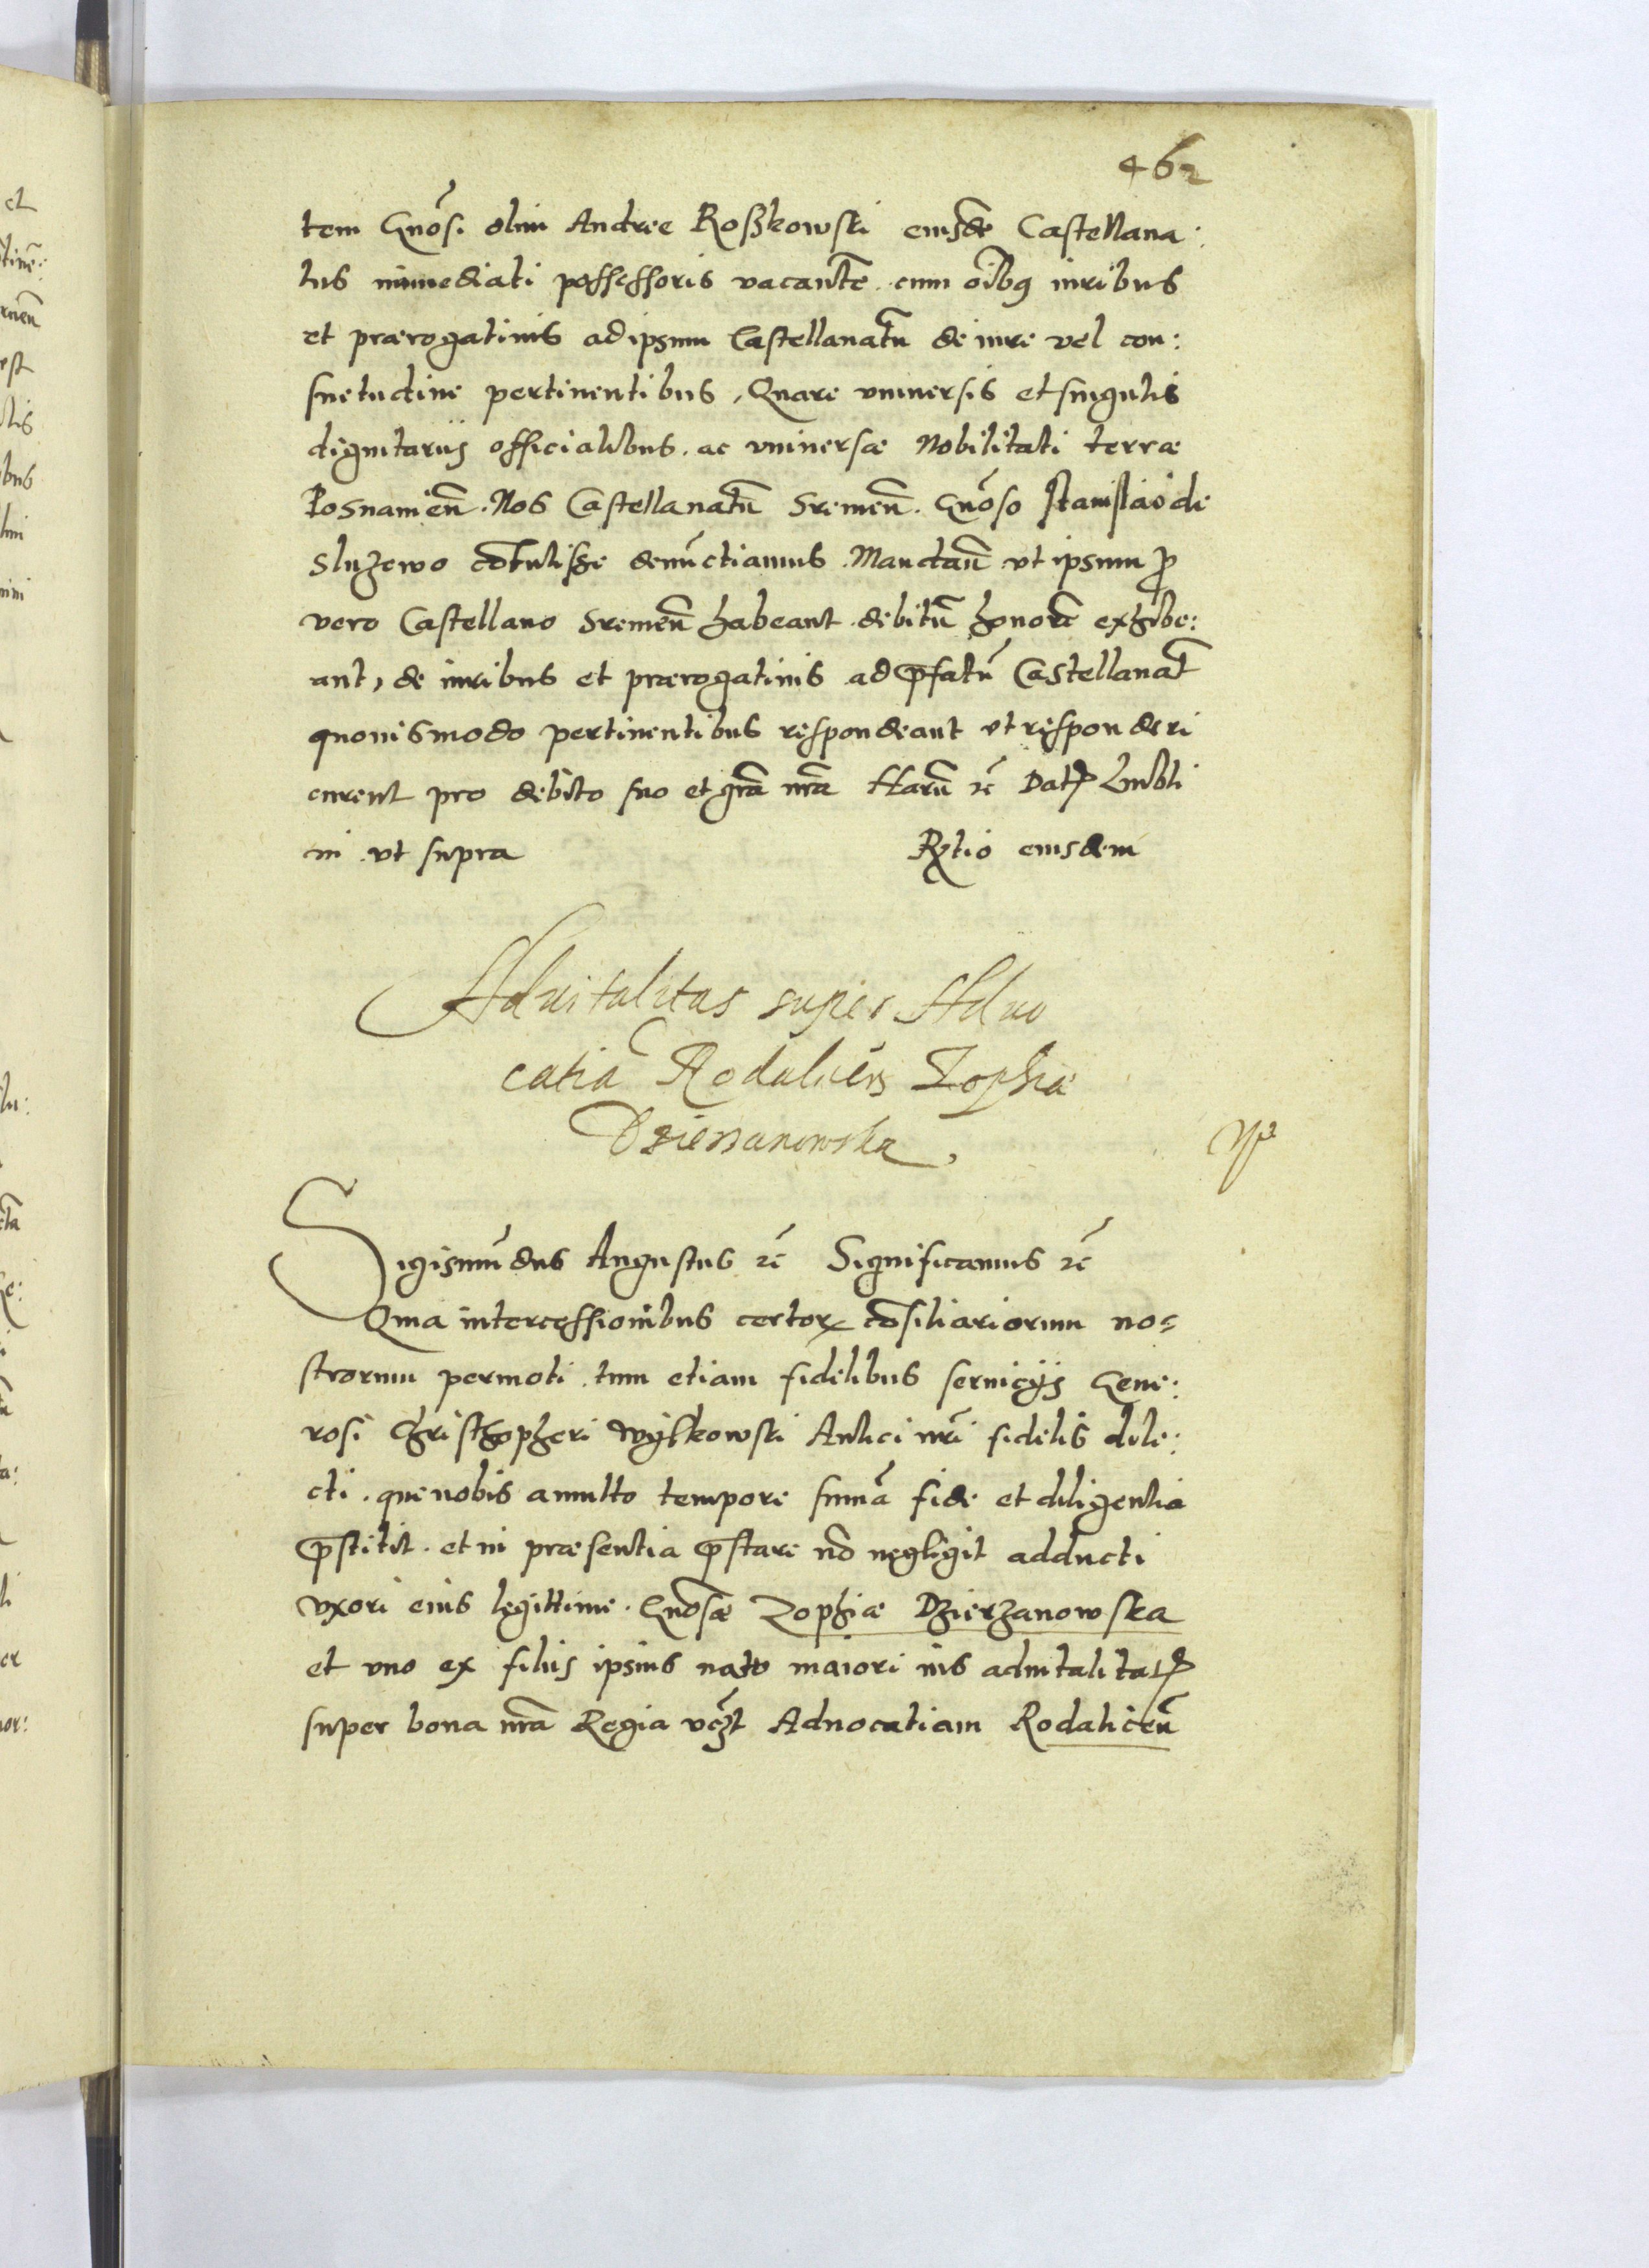 462
tem Gnõsi olim Andree Roszkowski eiusdẽ Castellana:
tus immediati possessoris vacantẽ. cum oĩbq iuribus
et prærogatiuis ad ipsum Castellanatũ de iure vel con:
suetudine pertinentibus, Quare vniuersis et singulis
dignitarijs officialibus. ac vniuersæ Nobilitati terræ
Posnaniẽn. Nos Castellanatũ Sremẽn. Gnõso Stanislao de
Sluzewo cõtulisse denũctiamus. Mandãn vt ipsum ꝓ
vero Castellano Sremẽn habeant. debitũ honorẽ exhibe:
ant, de iuribus et prærogatiuis ad p̃fatũ Castellanat̃
quouismodo pertinentibus respondeant vt responderi
curent pro debito suo et grã nrã Harũ ẽ Datꝭ Lubli
ni vt supra Rltio eiusdem
Aduitalitas super Aduo
catiã Rodaliceñ Zophiæ
Dzierzanowska.
Sigismũdus Augustus ẽ Significamus ẽ
Quia intercessionibus certoꝝ cõsiliariorum no=
strorum permoti. tum etiam fidelibus seruicijs Gene:
rosi Christhopheri Wylkowski Aulici nrĩ fidelis dile:
cti. que nobis a multo tempore sum̃a fide et diligentia
p̃stitit. et in præsentia p̃stare nõ negligit adducti
vxori eius legittime. Gnõsæ Zophiæ Dzierzanowska
et vno ex filiis ipsius nato maiori ius aduitalitatꝭ
super bona nrã Regia vcz̃t Aduocatiam Rodalicẽn